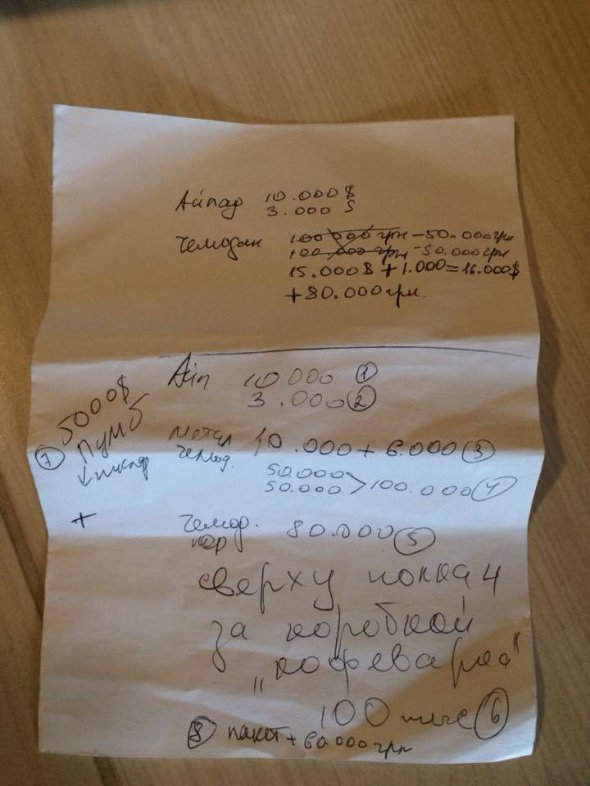 Айпад 10.000$
3.000 $
Чемодан 100 000 грн - 50.000 грн
100 000 грн - 50.000 грн
15.000$ + 1.000 = 16.000$
+ 80.000 грн.
Аiп 10 000 ①
3.000 ②
⑦ 5000$
Пумб
метал 10.000 + 6.000 ③
чемод.
50.000
50.000 > 100.000 ④
+
чемод. 80.000 ⑤
кор
сверху
за коробкой
„кофеварка"
100 тыс ⑥
⑧ пакет + 60.000 грн